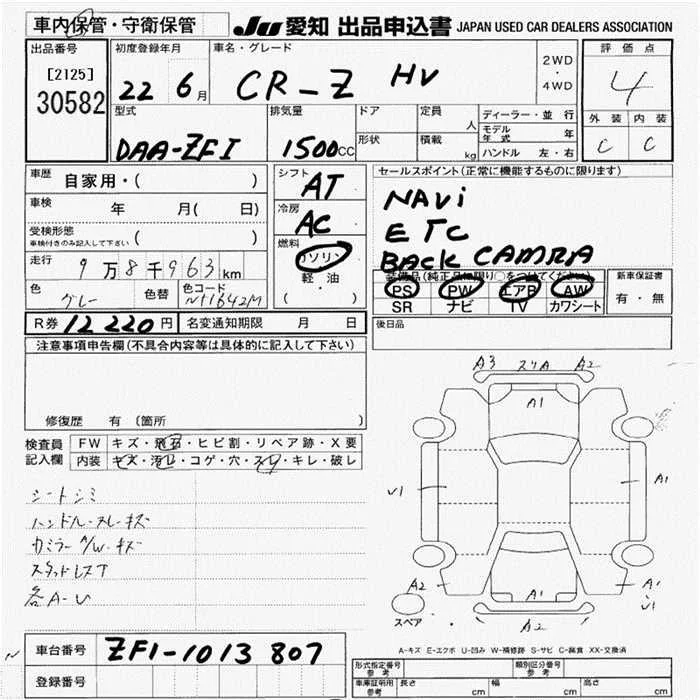 車内保管・守衛保管
JU 愛知 出品申込書 JAPAN USED CAR DEALERS ASSOCIATION
出品番号
[2125]
30582
初度登録年月
22 6月
車名・グレード
CR-Z HV
2WD
・
4WD
評価点
4
外装 内装
C C
型式
DAA-ZF1
排気量
1500cc
ドア
形状
定員 人
積載 kg
ディーラー・並行
モデル年式 年
ハンドル 左・右
車歴 自家用・( )
車検 年 月( 日)
受検形態
車検付きのみ記入して下さい ( )
走行 9万8千963km
色 グレー 色替 色コード NH1642M
R券 12220円 名変通知期限 月 日
シフト
AT
冷房
AC
燃料
ガソリン
・
軽油
( )
セールスポイント(正常に機能するものに限ります)
NAVi
ETC
BACK CAMRA
装備品(純正品に限り○をつけてください)
PS PW エアB AW
SR ナビ TV カワシート
新車保証書
有・無
後日品
注意事項申告欄(不具合内容等は具体的に記入して下さい)
修復歴 有 (箇所 )
検査員
記入欄
FW キズ・飛石・ヒビ割・リペア跡・X要
内装 キズ・汚レ・コゲ・穴・スレ・キレ・破レ
シートシミ
ハンドルスレ・キズ
カミラーA/W・キズ
スタッドレスT
各A-U
A3 スリA A2
A1
V1
A1
A2
A1
A1
V1
A2
スペア
A-キズ E-エクボ U-凹み W-補修跡 S-サビ C-腐食 XX-交換済
車台番号 ZF1-1013807
登録番号
型式指定番号
参考
類別区分番号
参考
車庫証明用
参考
長さ cm 幅 cm 高さ cm